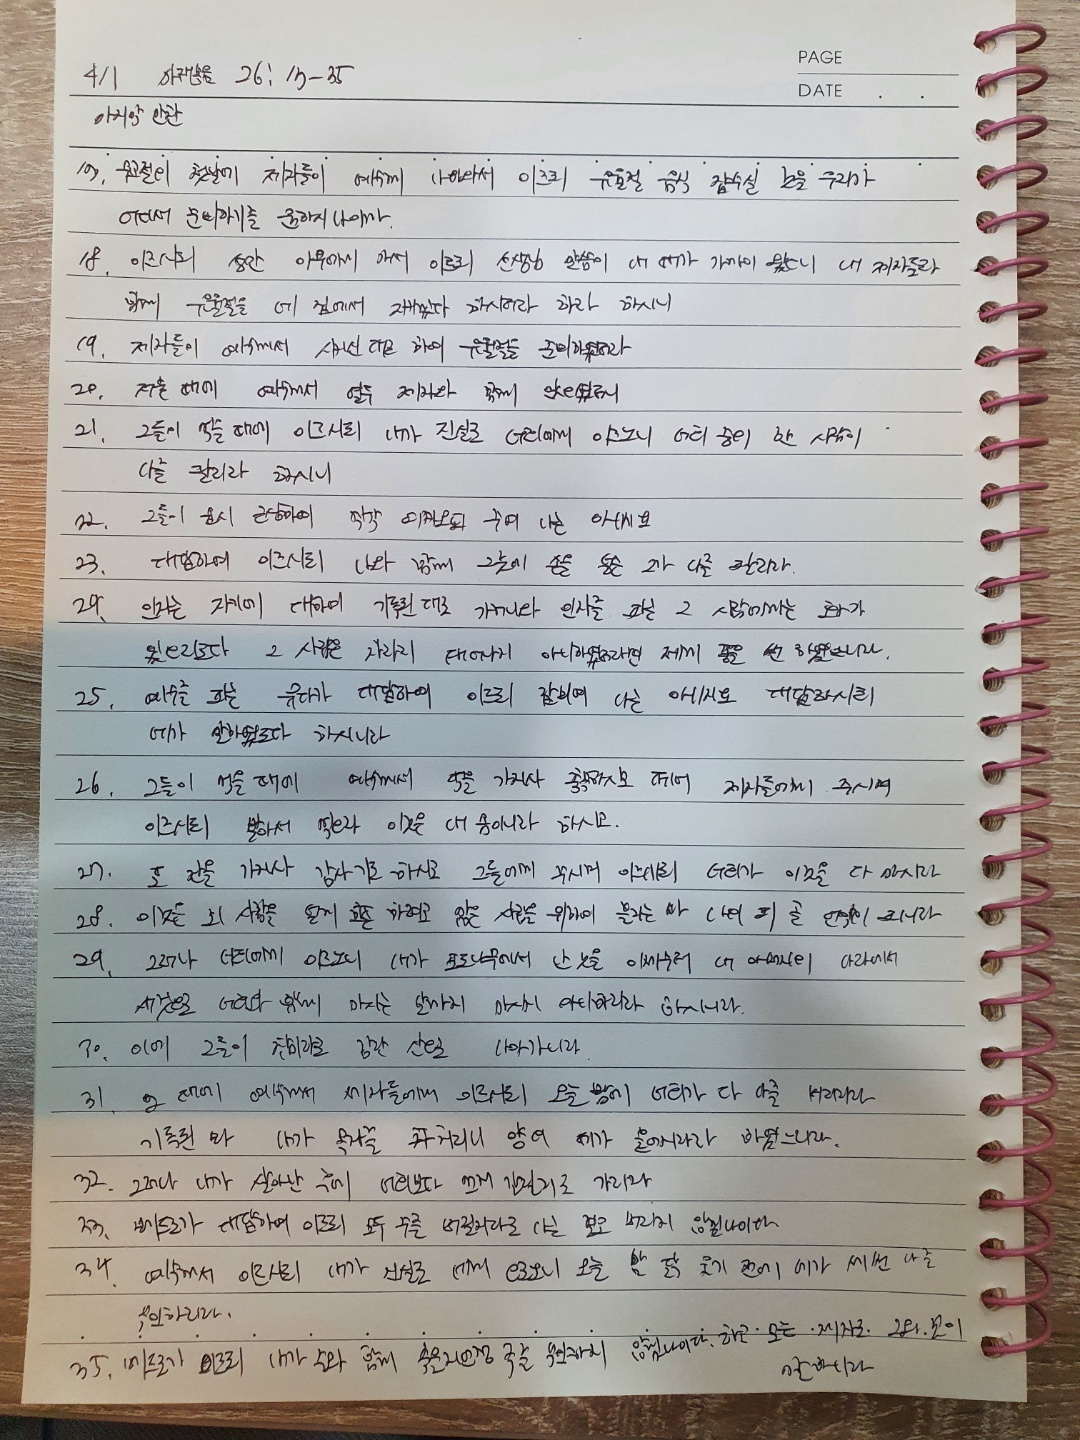 PAGE
DATE . .
4/1 마태복음 26:17-35
마지막 만찬
17. 무교절의 첫날에 제자들이 예수께 나아와서 이르되 유월절 음식 잡수실 것을 우리가
어디서 준비하기를 원하시나이까
18. 이르시되 성안 아무에게 가서 이르되 선생님 말씀이 내 때가 가까이 왔으니 내 제자들과
함께 유월절을 네 집에서 지키겠다 하시더라 하라 하시니
19. 제자들이 예수께서 시키신 대로 하여 유월절을 준비하였더라
20. 저물 때에 예수께서 열두 제자와 함께 앉으셨더니
21. 그들이 먹을 때에 이르시되 내가 진실로 너희에게 이르노니 너희 중의 한 사람이
나를 팔리라 하시니
22. 그들이 몹시 근심하여 각각 여짜오되 주여 나는 아니지요
23. 대답하여 이르시되 나와 함께 그릇에 손을 넣은 그가 나를 팔리라.
24. 인자는 자기에 대하여 기록된 대로 가거니와 인자를 파는 그 사람에게는 화가
있으리로다 그 사람은 차라리 태어나지 아니하였더라면 제게 좋을 뻔 하였느니라.
25. 예수를 파는 유다가 대답하여 이르되 랍비여 나는 아니지요 대답하시되
네가 말하였도다 하시니라
26. 그들이 먹을 때에 예수께서 떡을 가지사 축복하시고 떼어 제자들에게 주시며
이르시되 받아서 먹으라 이것은 내 몸이니라 하시고.
27. 또 잔을 가지사 감사기도 하시고 그들에게 주시며 이르시되 너희가 이것을 다 마시라
28. 이것은 죄 사함을 얻게 하려고 많은 사람을 위하여 흘리는 바 나의 피 곧 언약의 피니라
29. 그러나 너희에게 이르노니 내가 포도나무에서 난 것을 이제부터 내 아버지의 나라에서
새것으로 너희와 함께 마시는 날까지 마시지 아니하리라 하시니라.
30. 이에 그들이 찬미하고 감람 산으로 나아가니라.
31. 그 때에 예수께서 제자들에게 이르시되 오늘 밤에 너희가 다 나를 버리리라
기록된 바 내가 목자를 치리니 양의 떼가 흩어지리라 하였느니라.
32. 그러나 내가 살아난 후에 너희보다 먼저 갈릴리로 가리라
33. 베드로가 대답하여 이르되 모두 주를 버릴지라도 나는 결코 버리지 않겠나이다
34. 예수께서 이르시되 내가 진실로 네게 이르노니 오늘 밤 닭 울기 전에 네가 세 번 나를
부인하리라.
35. 베드로가 이르되 내가 주와 함께 죽을지언정 주를 부인하지 않겠나이다. 하고 모든 제자도 그와 같이
말하니라